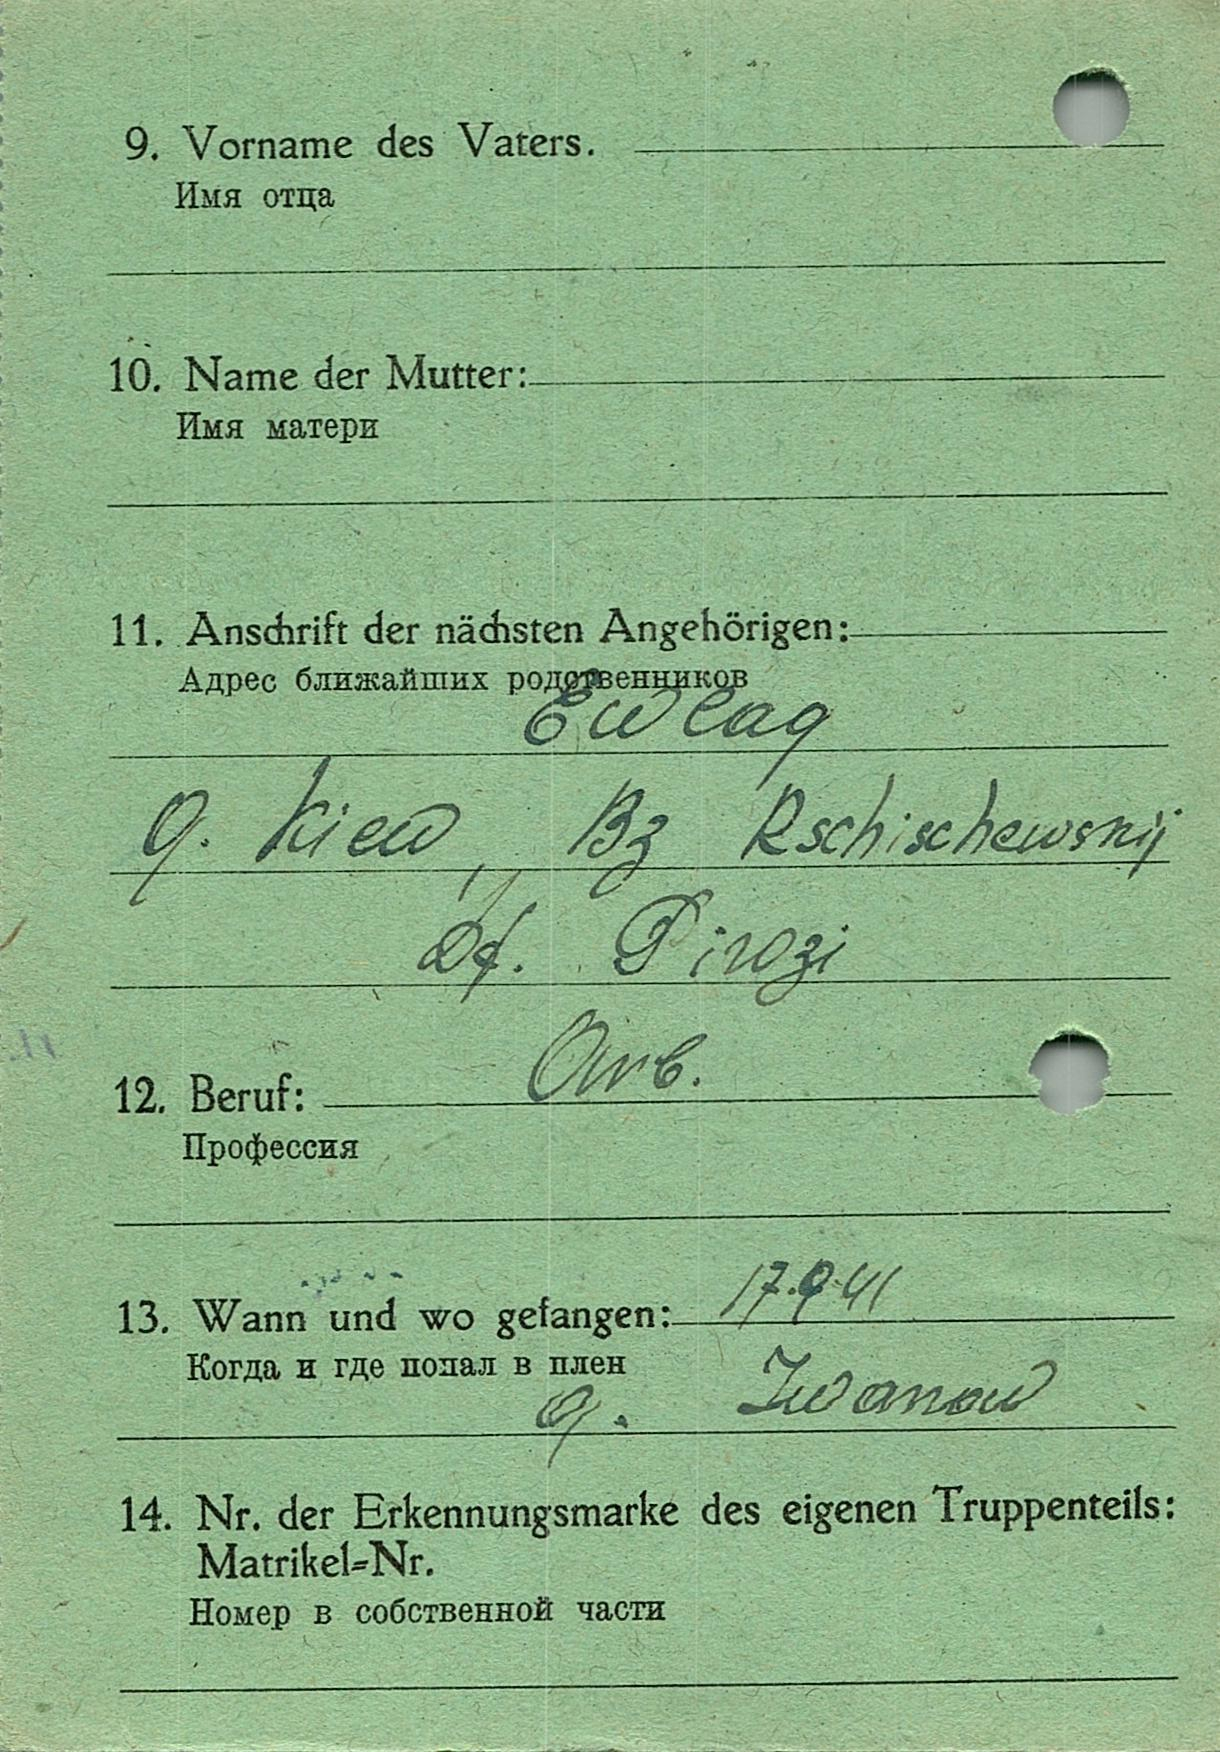 9. Vorname des Vaters.
Имя отца
10. Name der Mutter:
Имя матери
11. Anschrift der nächsten Angehörigen:
Адрес ближайших родственников
g. Kiew, Bz Rschischewskij
Df. Pirozi
12. Beruf: Arb.
Профессия
13. Wann und wo gefangen: 17.9.41
Когда и где попал в плен
g. Iwanow
14. Nr. der Erkennungsmarke des eigenen Truppenteils:
Matrikel-Nr.
Номер в собственной части